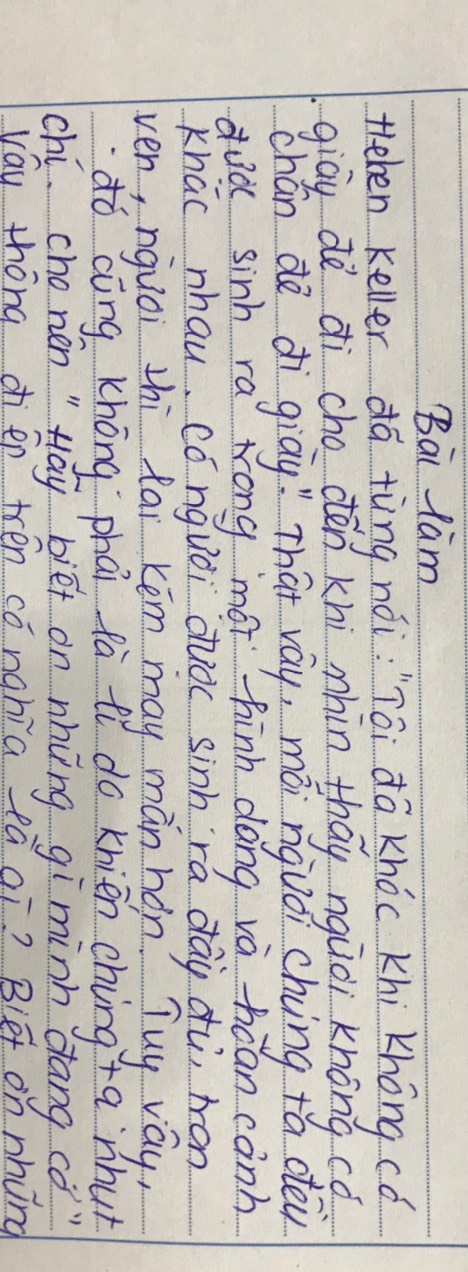 Bài làm
Helen Keller đã từng nói: "Tôi đã khóc khi không có
giày để đi cho đến khi nhìn thấy người không có
chân để đi giày." Thật vậy, mỗi người chúng ta đều
được sinh ra trong một hình dáng và hoàn cảnh
khác nhau. Có người được sinh ra đầy đủ, tron
vẹn, người thì lại kém may mắn hơn. Tuy vậy,
đó cũng không phải là lí do khiến chúng ta nhụt
chí. cho nên "Hãy biết ơn những gì mình đang có"
Vậy thông điệp trên có nghĩa là gì? Biết ơn những